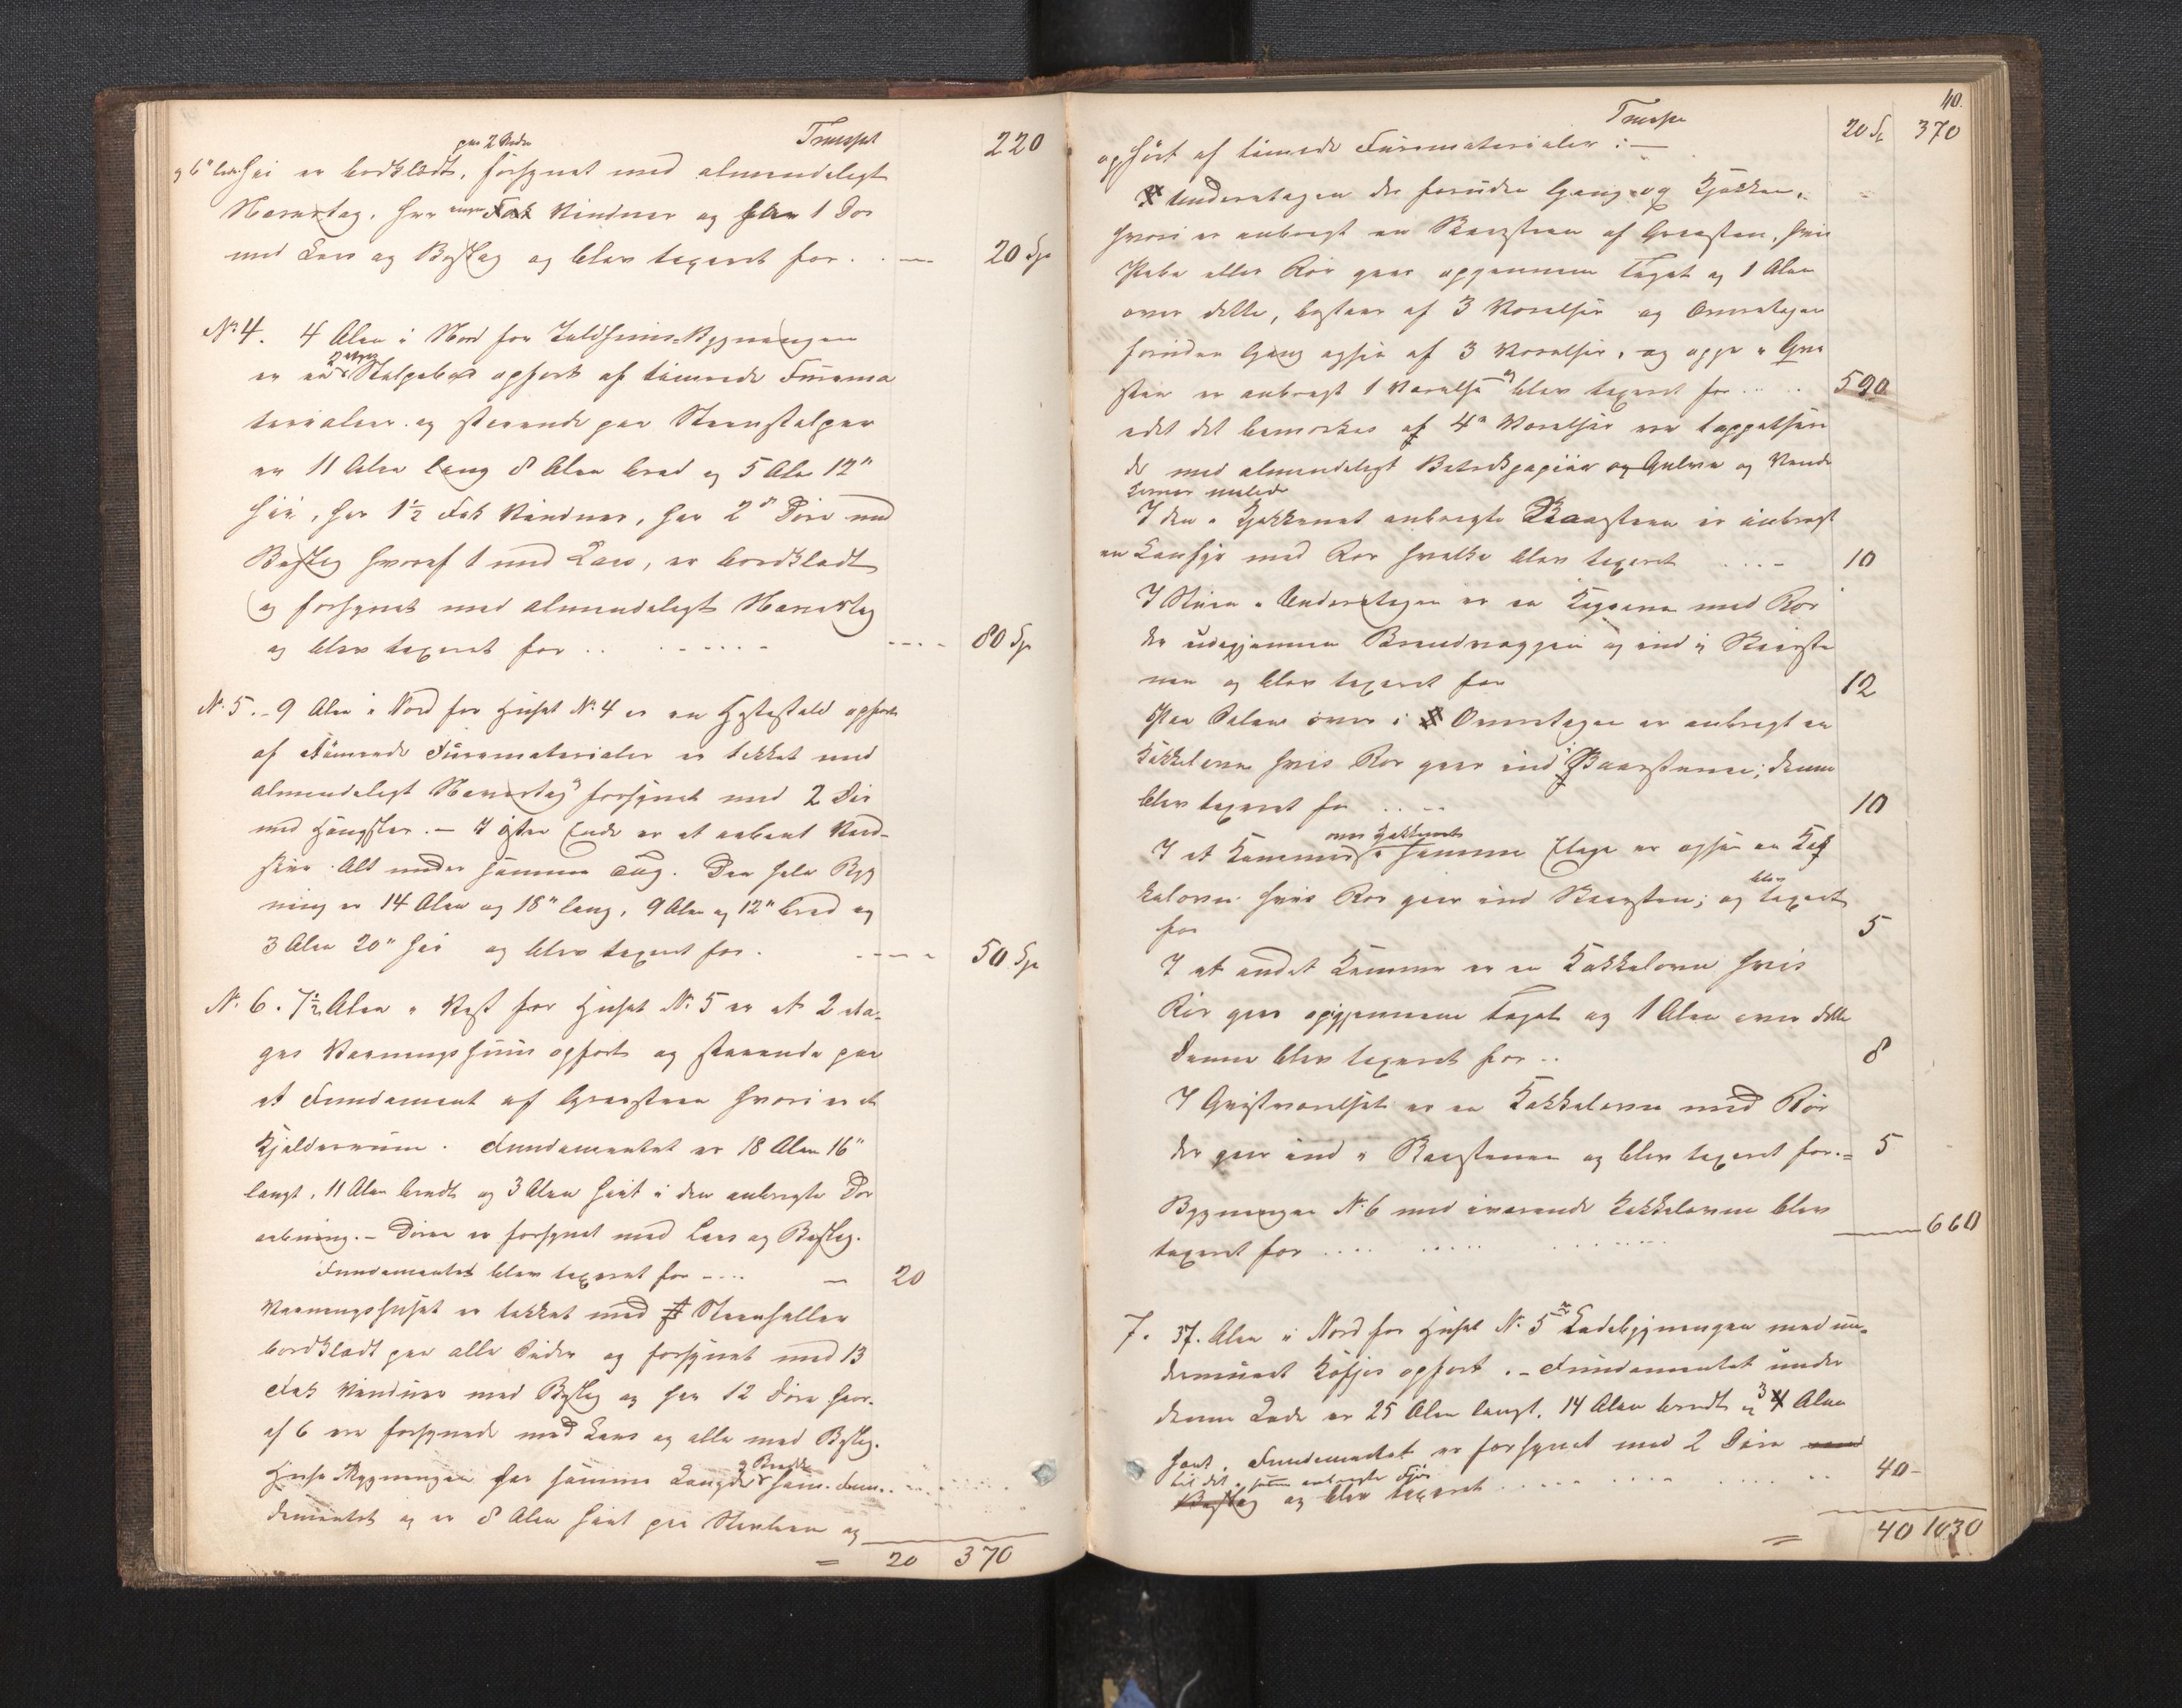 Transport 220
paa 2 Sider
og 6" høi er bordklædt, forsynet med almindeligt
Nævertag, har ingen Fak Vinduer og har 1 Dør
med Laas og Beslag og blev taxeret for . . — 20 Sp
No 4. 4 Alen i Nord for Ildhuus-Bygningen
2 etages
er en Stolpebod opført af tømrede Furuma
terialier og staaende paa Steenstolper
er 11 Alen lang 8 Alen bred og 5 Alen 12"
høi, har 1½ Fak Vinduer, har 2de Døre med
Beslag hvoraf 1 med Laas, er bordklædt
og forsynet med almindeligt Nævertag
og blev taxeret for . . . . . 80 Sp
No 5. - 9 Alen i Nord for Huset No 4 er en Hestestald opført
af tømrede Furumaterialier er tækket med
almindeligt Nævertag forsynet med 2 Dør
med Hængsler. — I østre Ende er et aabent Ved-
skur. Alt under samme Tag. Den hele Byg
ning er 14 Alen og 18" lang, 9 Alen og 12" bred og
3 Alen 20" høi og blev taxeret for . - - - 50 Sp
No. 6. 7½ Alen i Vest for Huset No 5 er et 2 eta-
ges Vaaningshuus opført og staaende paa
et Fundament af Graasteen hvori er et
Kjelderrum. Fundamentet er 18 Alen 16"
langt, 11 Alen bredt og 3 Alen høit i den anbragte Dør
aabning. - Døren er forsynet med Laas og Beslag.
Fundamentet blev taxeret for - . . . — 20
Vaaningshuset er tækket med Steenheller
bordklædt paa alle Sider og forsynet med 13
Fak Vinduer med Beslag og har 12 Døre hvor-
af 6 ere forsynede med Laas og alle med Beslag.
og Bredde
Huus Bygningen har samme Længde som Fun-
damentet og er 8 Alen høit paa og
= 20 370
40.
Transp 20 Sp 370
opført af tømrede Furumaterialier : —
Underetagen der foruden Gang og Kjøkken,
hvori er anbragt en Skorsteen af Graasteen, hvis
Pibe eller Rør gaar opgjennem Taget og 1 Alen
over dette, bestaar af 3 Værelser og Overetagen
foruden Gang ogsaa af 3 Værelser, og oppe i Qvi
sten er anbragt 1 Værelse og blev taxeret for . . . . 590
idet det bemærkes at 4 Værelser ere tappetsere
de med almindeligt Betrækpapiir og Gulve og Vindu
karmer malede
I den i Kjøkkenet anbragte Skorsteen er indbragt
en Komfyr med Rør hvilke blev taxeret . . . - 10
I Stuen i Underetagen er en Kogeovn med Rør
der udgjennem Brandvæggen og ind i Skorste
nen og blev taxeret for 12
Paa Salen over i Overetagen er anbragt en
Kakkelovn hvis Rør gaar ind i Skorstenen; denne
blev taxeret for . . - 10
over Kjøkkenet
I et Kammer i samme Etage er ogsaa en Kak
blev
kelovn hvis Rør gaar ind Skorsten; og taxert
for 5
I et andet Kammer er en Kakkelovn hvis
Rør gaar opgjennem Taget og 1 Alen over dette
denne blev taxeret for . . 8
I Qvistværelset er en Kakkelovn med Rør
der gaar ind i Skorstenen og blev taxeret for. = 5
Bygningen No 6 med iværende Kakkelovne blev
taxeret for . . . . . . . . . — 660
7. 37. Alen i Nord for Huset No. 5 er Ladebygningen med un-
dermuret Kofjøs opført. - Fundamentet under
denne Lade er 25 Alen langt, 14 Alen bredt og 3 Alen
høit. Fundamentet er forsynet med 2 Døre med
til det i samme anbragte Fjøs
Beslag og blev taxeret . . . . . 40 -
= 40 1030